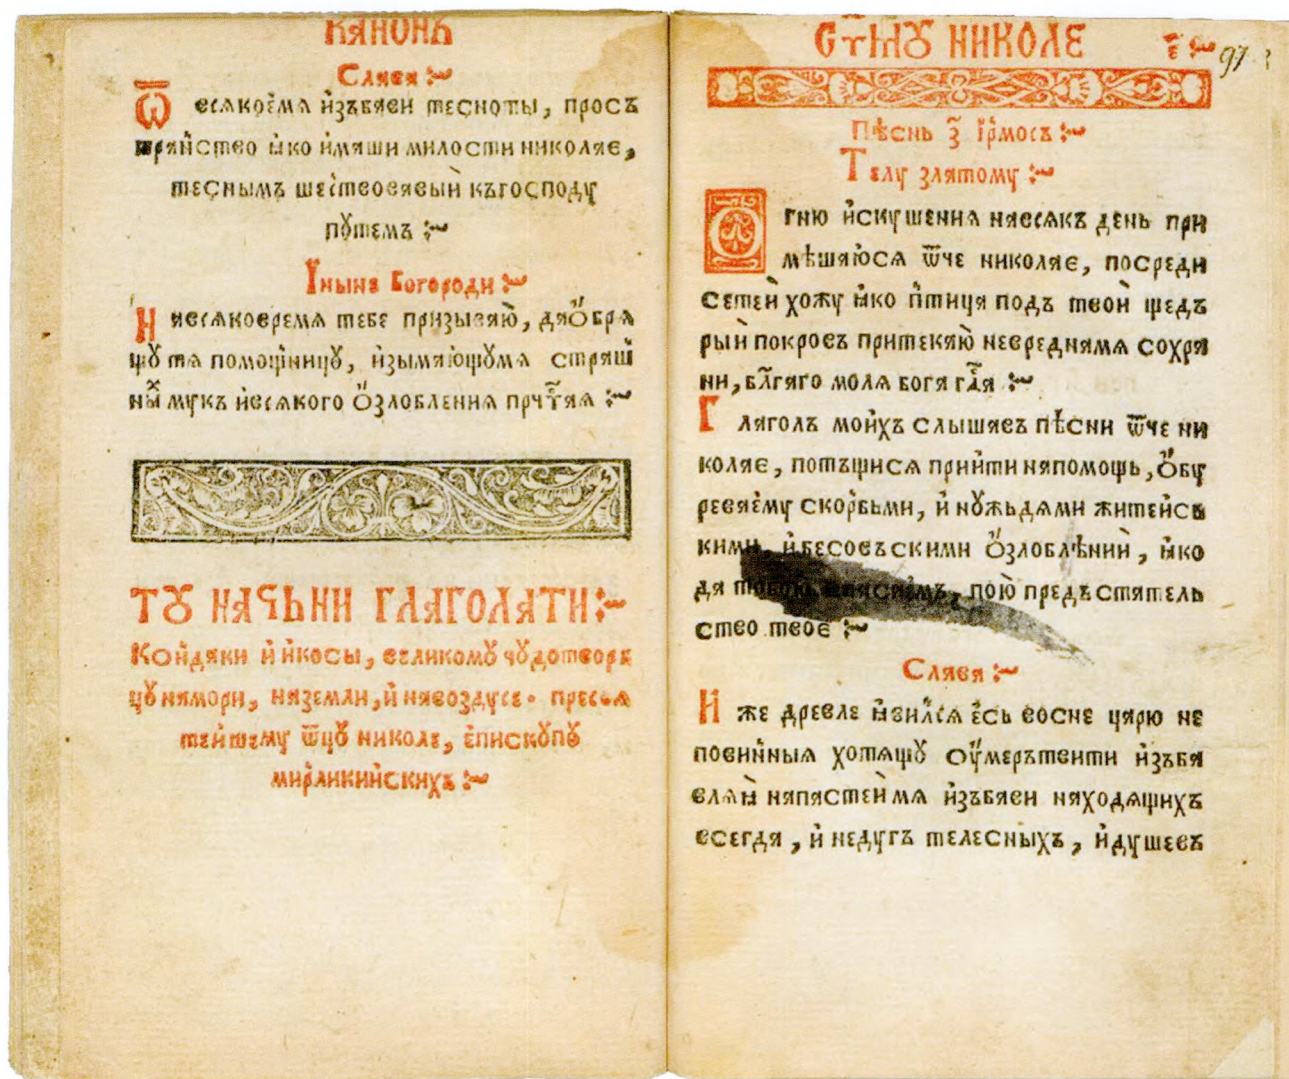 КАНОНЪ
Слава
Ѿ всѧкоѐмѧ и҆зъбави тесноты, просъ
транство ꙗко и҆маши милости николае,
тесным шествовавыи҆ къ господу
пꙋтемъ
И҆ныне Богороди
Н авсѧковремѧ тебе призываю҆, даѡ҆брѧ
щꙋ тѧ помощницꙋ, и҆зымающꙋмѧ страш
ны҆ мукъ и҆всѧкого ѡ҆злобленнѧ прч҇таѧ
ТꙊ НАЧЬНИ ГЛАГОЛАТИ
Кои҆даки и҆ и҆косы, великомꙋ чꙋдотворъ
цꙋ намори, наземли, и҆ навоздусе. пресвѧ
теишему ѿцꙋ николе, е҆пископꙋ
мирликиискихъ
СТ҃МꙊ НИКОЛЕ е҃ 97
Пѣснь з҃ і҆рмосъ
Телу златому
О гню и҆скушенна навсѧкъ день при
мѣшаюсѧ ѿче николае, посреди
сетеи҆ хожу ꙗко птица подъ твои҆ щедъ
рыи҆ покровъ притекаю҆ невреднамѧ сохра
ни, бл҃гаго молѧ бога гд҇а
Г лаголъ мои҆хъ слышавъ пѣсни ѿче ни
колае, потъщисѧ прии҆ти напомощь, ѡ҆бу
реваѐму скорбьми, и҆ нꙋжьдами житеи҆сь
кими, и҆бесовъскими ѡ҆злоблѣнии҆, ꙗко
да тобою спасаем, пою҆ предъстатель
ство твоѐ
Слава
И же древле ꙗвилсѧ е҆сь восне царю не
повинныѧ хотѧщꙋ оу҆мерътвити и҆зъба
влѧѧ напастеи҆ мѧ и҆зъбави находѧщихъ
всегда, и҆ недугъ телесныхъ, и҆душевъ